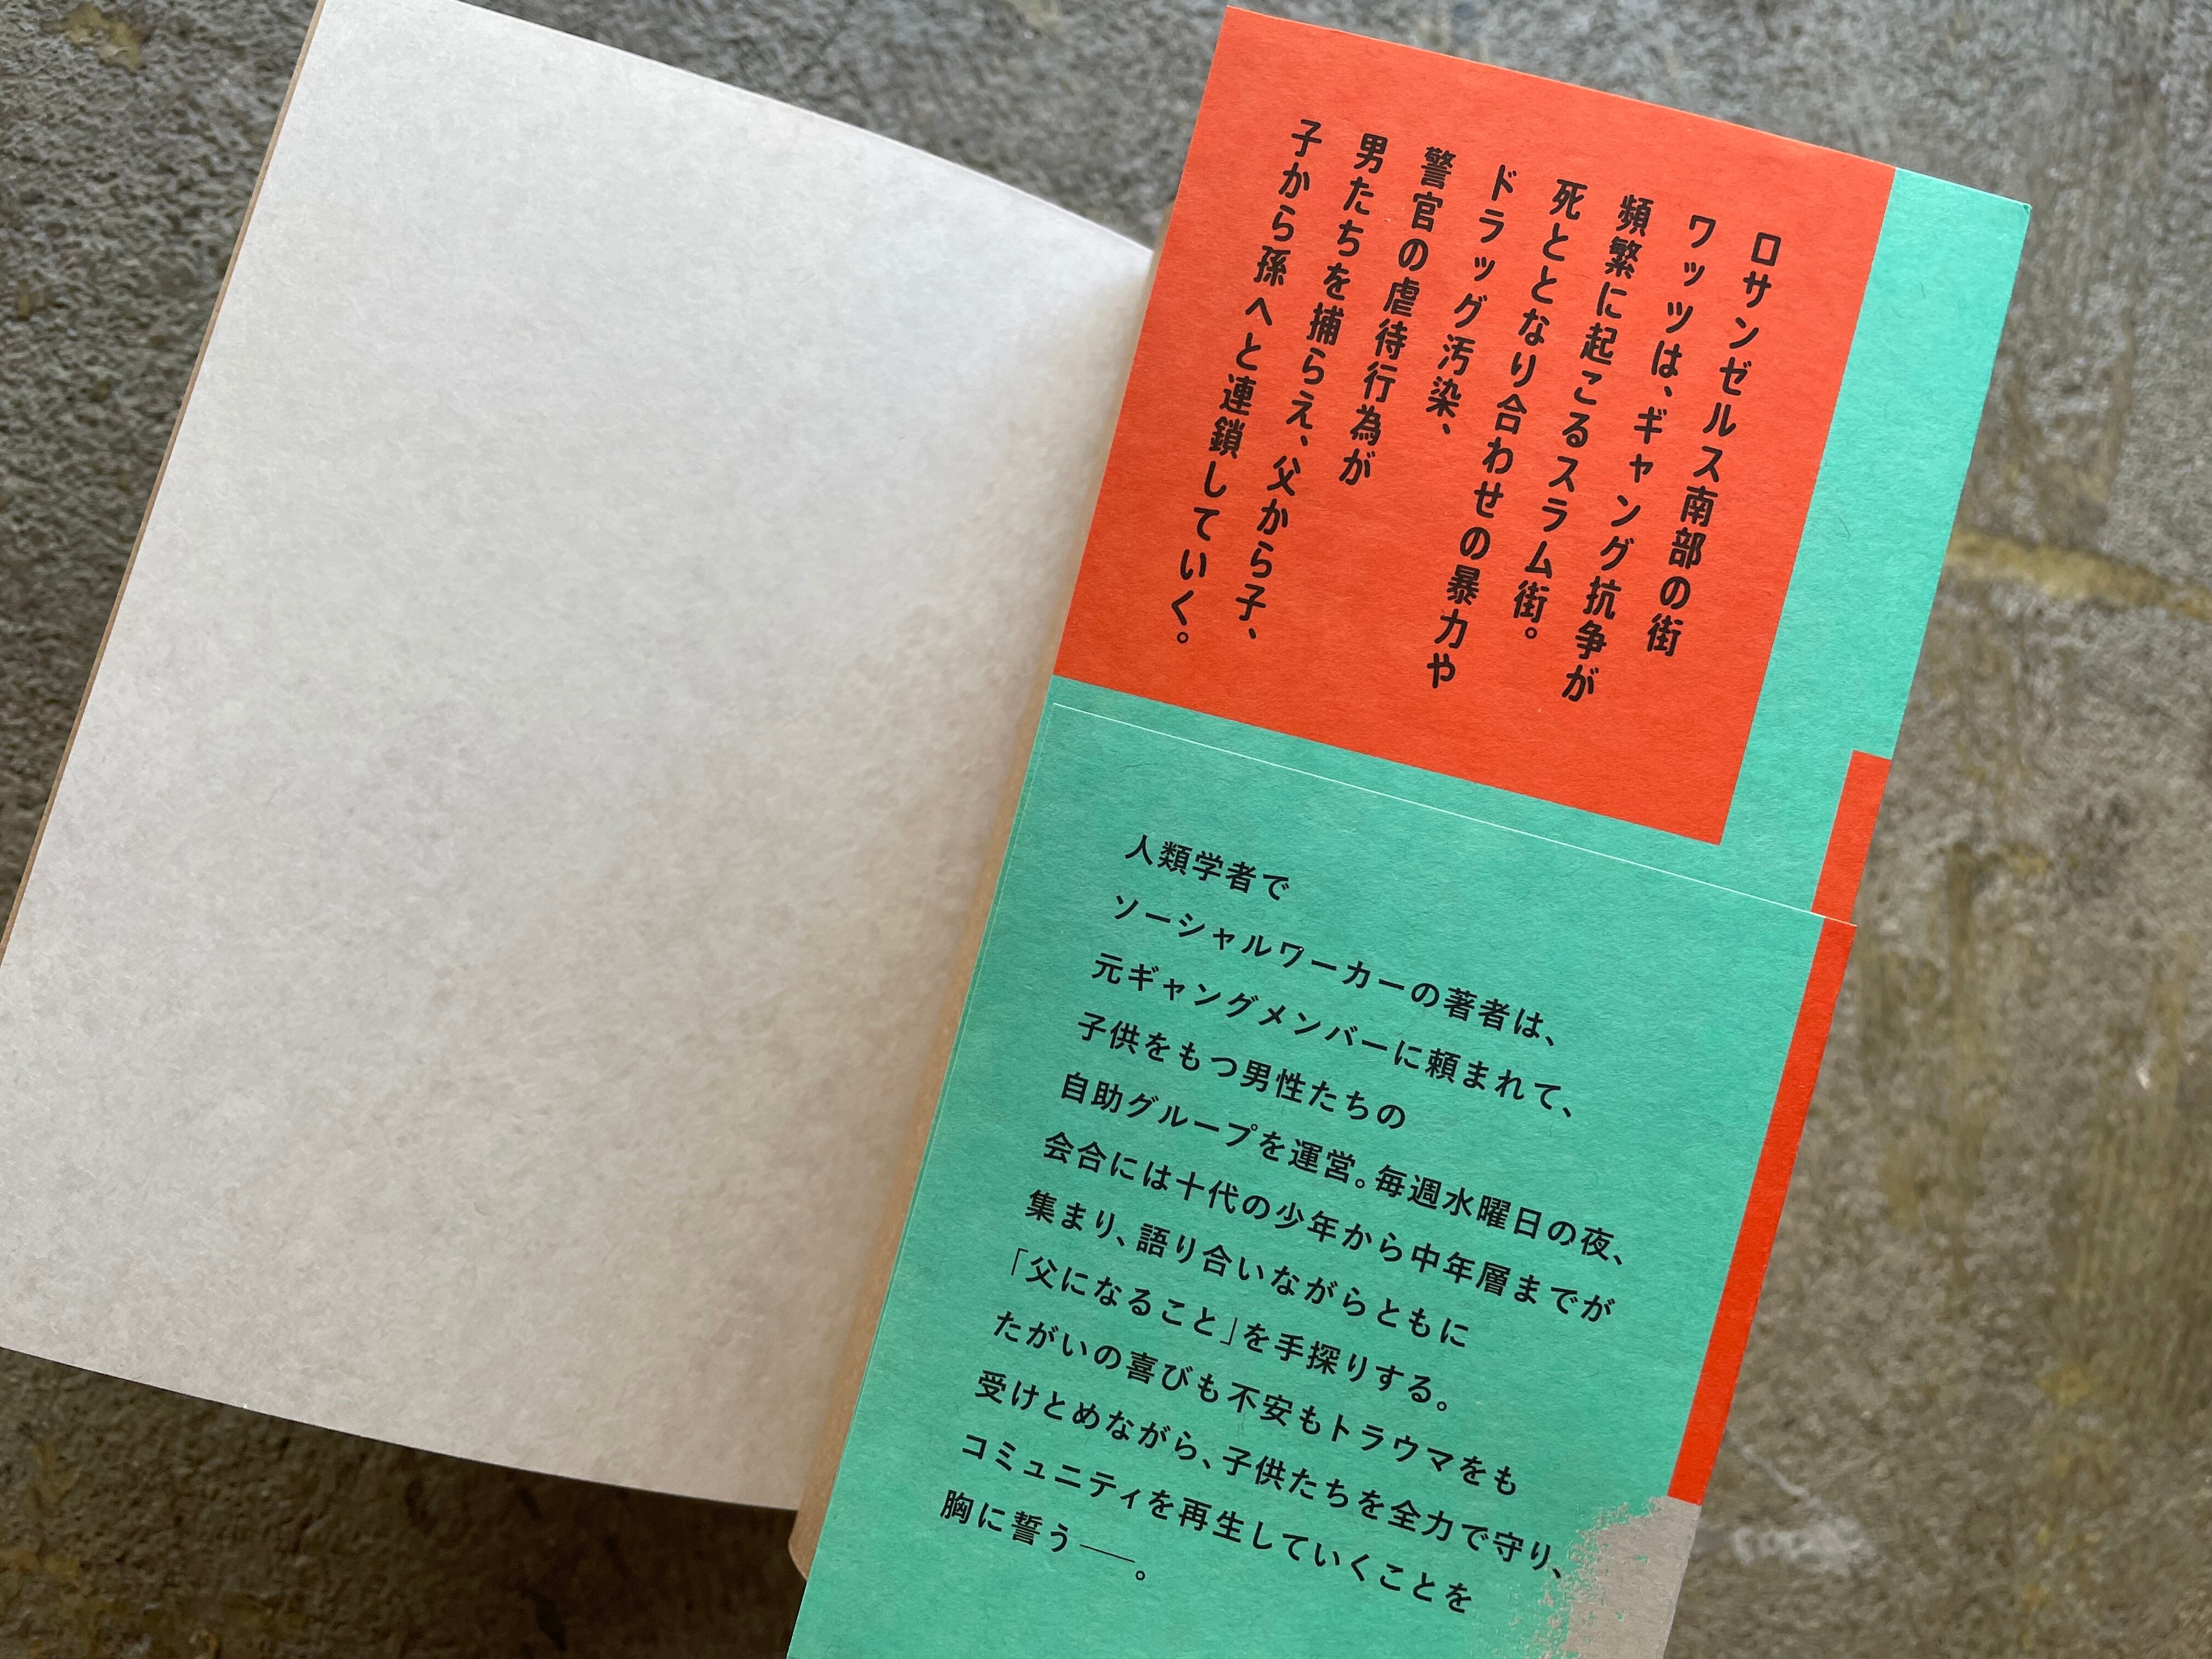 ロサンゼルス南部の街
ワッツは、ギャング抗争が
頻繁に起こるスラム街。
死ととなり合わせの暴力や
ドラッグ汚染、
警官の虐待行為が
男たちを捕らえ、父から子、
子から孫へと連鎖していく。
人類学者で
ソーシャルワーカーの著者は、
元ギャングメンバーに頼まれて、
子供をもつ男性たちの
自助グループを運営。毎週水曜日の夜、
会合には十代の少年から中年層までが
集まり、語り合いながらともに
「父になること」を手探りする。
たがいの喜びも不安もトラウマをも
受けとめながら、子供たちを全力で守り、
コミュニティを再生していくことを
胸に誓う――。